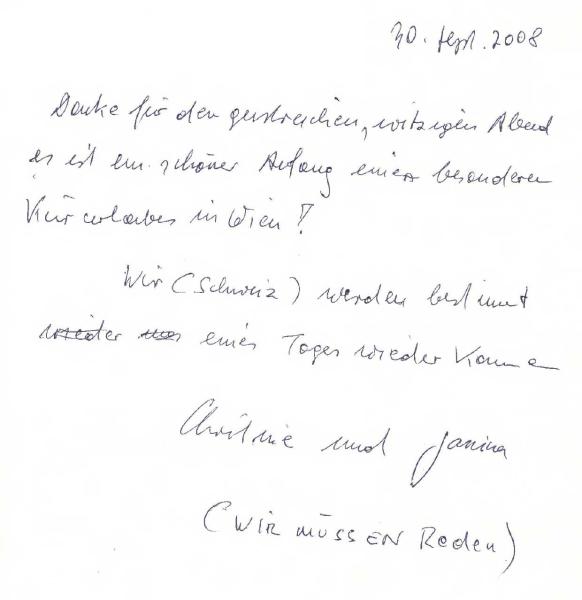 30. Sept. 2008
Danke für den geistreichen, witzigen Abend
es ist ein schöner Anfang eines besonderen
Kurzurlaubes in Wien!
Wir (Schweiz) werden bestimmt
wieder eines Tages wieder kommen
Christine und Janina
(WIR MÜSSEN Reden)